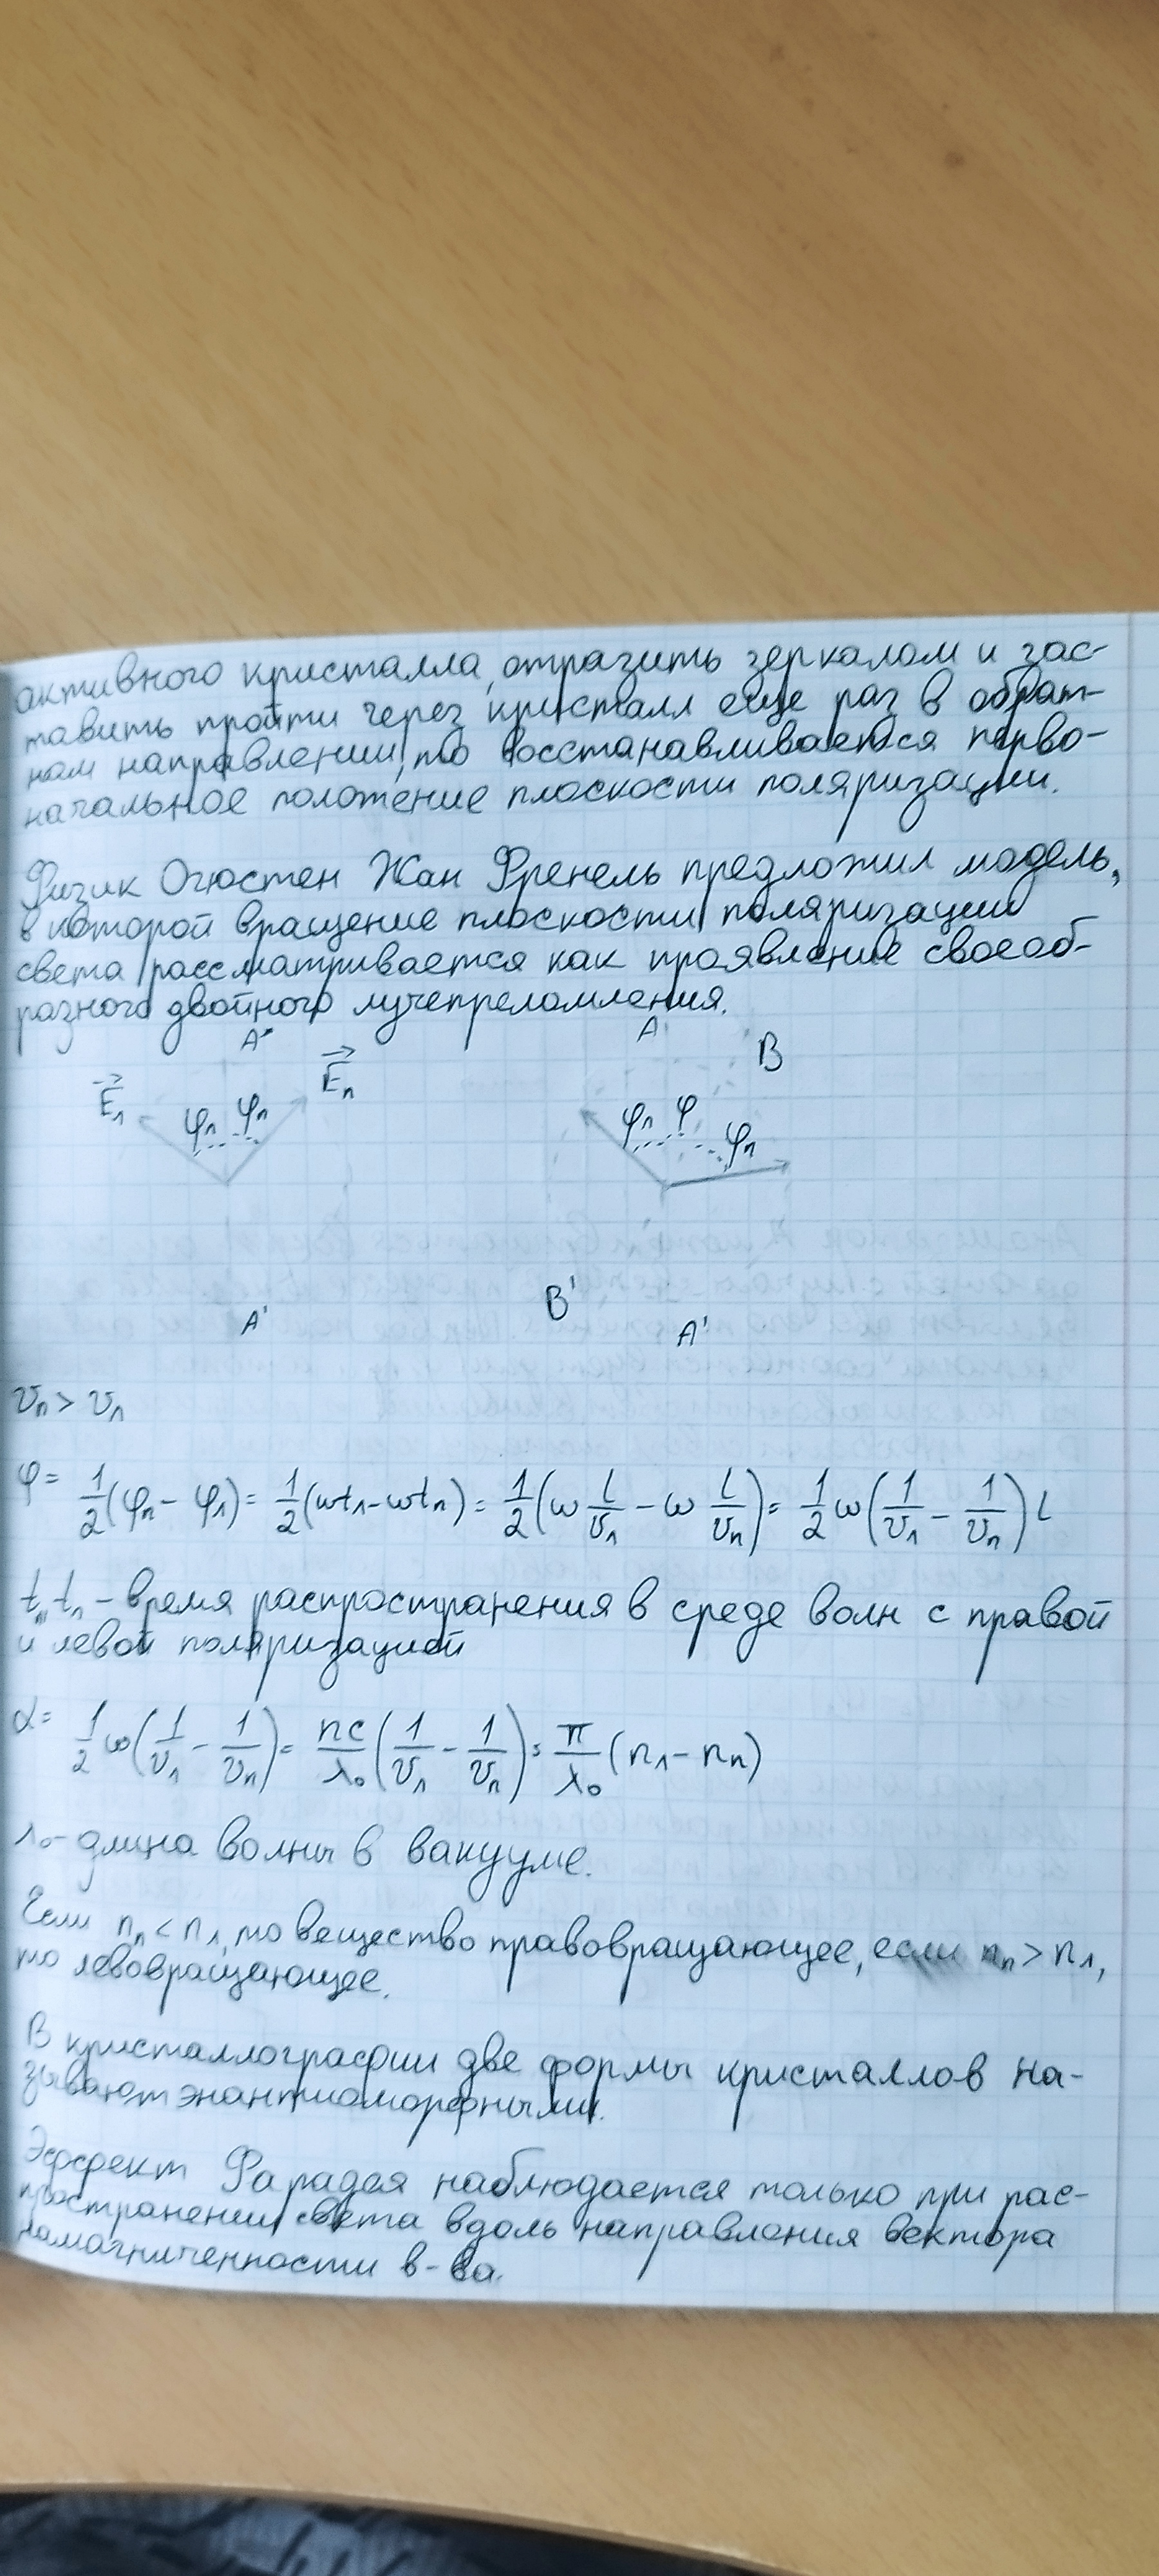 активного кристалла, отразить зеркалом и зас-
тавить пройти через кристалл еще раз в обрат-
ном направлении, то восстанавливается перво-
начальное положение плоскости поляризации.
Физик Огюстен Жан Френель предложил модель,
в которой вращение плоскости поляризации
света рассматривается как проявление своеоб-
разного двойного лучепреломления.
A A
B
E⃗л E⃗п
φл φп φл φ φп
B'
A' A'
υп > υл
φ = 1/2(φп − φл) = 1/2(ωtл − ωtп) = 1/2(ω l/υл − ω l/υп) = 1/2 ω(1/υл − 1/υп) l
tп, tл – время распространения в среде волн с правой
и левой поляризацией
α = 1/2 ω(1/υл − 1/υп) = πc/λ₀ (1/υл − 1/υп) = π/λ₀ (nл − nп)
λ₀ – длина волны в вакууме.
Если nп < nл, то вещество правовращающее, если nп > nл,
то левовращающее.
В кристаллографии две формы кристаллов на-
зывают энантиоморфными.
Эффект Фарадея наблюдается только при рас-
пространении света вдоль направления вектора
намагниченности в-ва.